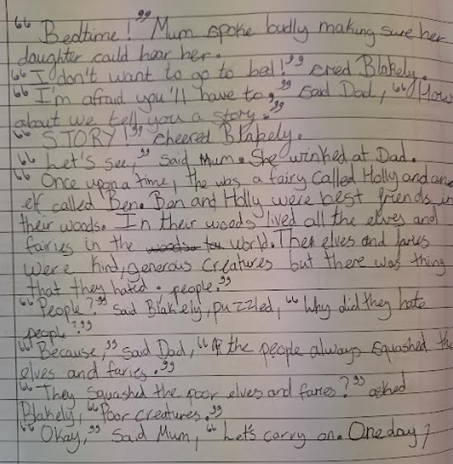 "Bedtime!" Mum spoke loudly making sure her
daughter could hear her.
"I don't want to go to bed!" cried Blakely.
"I'm afraid you'll have to," said Dad, "How
about we tell you a story."
"STORY!" cheered Blakely.
"Let's see," said Mum. She winked at Dad.
"Once upon a time, the was a fairy called Holly and an
elf called Ben. Ben and Holly were best friends in
their woods. In their woods lived all the elves and
fairies in the world. The elves and faries
were kind, generous creatures but there was thing
that they hated. people."
"People?" said Blakely, puzzled, "Why did they hate
people?"
"Because," said Dad, "the people always squashed the
elves and faries."
"They squashed the poor elves and faries?" asked
Blakely, "Poor creatures."
"Okay," said Mum, "Let's carry on. One day,